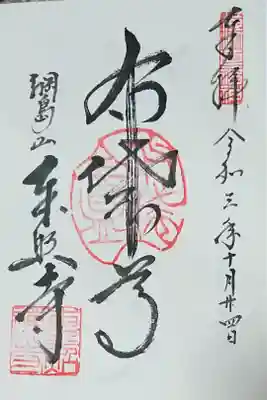 奉拝 令和三年十月廿四日
布袋尊
綱島山
東照寺